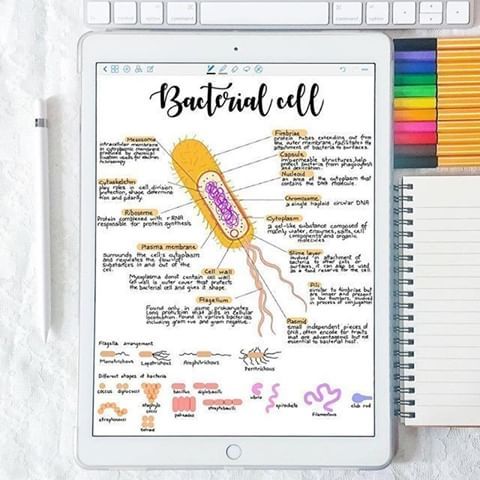 Bacterial cell
Mesosome
intracellular membrane
in cytoplasmic membrane
produced by chemical
fixation used for electron
microscopy
Cytoskeleton
play roles in cell division
protection, shape determina
tion and polarity.
Ribosome
Protein combined with rRNA
responsible for protein synthesis.
Plasma membrane
Surrounds the cell's cytoplasm
and regulates the flow of
substances in and out of the
cell.
Cell wall
Mycoplasma donot contain cell wall
Cell wall is outer cover that protects
the bacterial cell and gives it shape.
Flagellum
Found only in some prokaryotes
Long protrusion that aids in cellular
locomotion. Found in various bacterias
including gram +ve and gram negative.
Fimbriae
protein tubes extending out from
the outer membrane, facilitates the
attachment of bacteria to surfaces.
Capsule
impermeable structures, help
protect bacteria from phagocytosis
and desiccation.
Nucleoid
an area of the cytoplasm that
contains the DNA molecule.
Chromosome
a single haploid circular DNA
Cytoplasm
A gel-like substance composed of
mainly water, enzymes, salts, cell
components and organic
molecules
Slime layer
involved in attachment of
bacteria to other cells or
surfaces, it can also be used
as a food reserve for the cell.
Pili
similar to fimbriae but
are longer and present
in low numbers, involved
in process of conjugation
Plasmid
small independent pieces of
DNA, often encode for traits
that are advantageous but no
essential to bacterial host.
Flagella arrangement
Monotrichous Lopotrichous Amphitrichous Peritrichous
Different shapes of bacteria
coccus diplococci bacillus diplobacilli vibrio spirochete filamentous club rod
streptococci staphylo
cocci palisades streptobacilli
tetrad